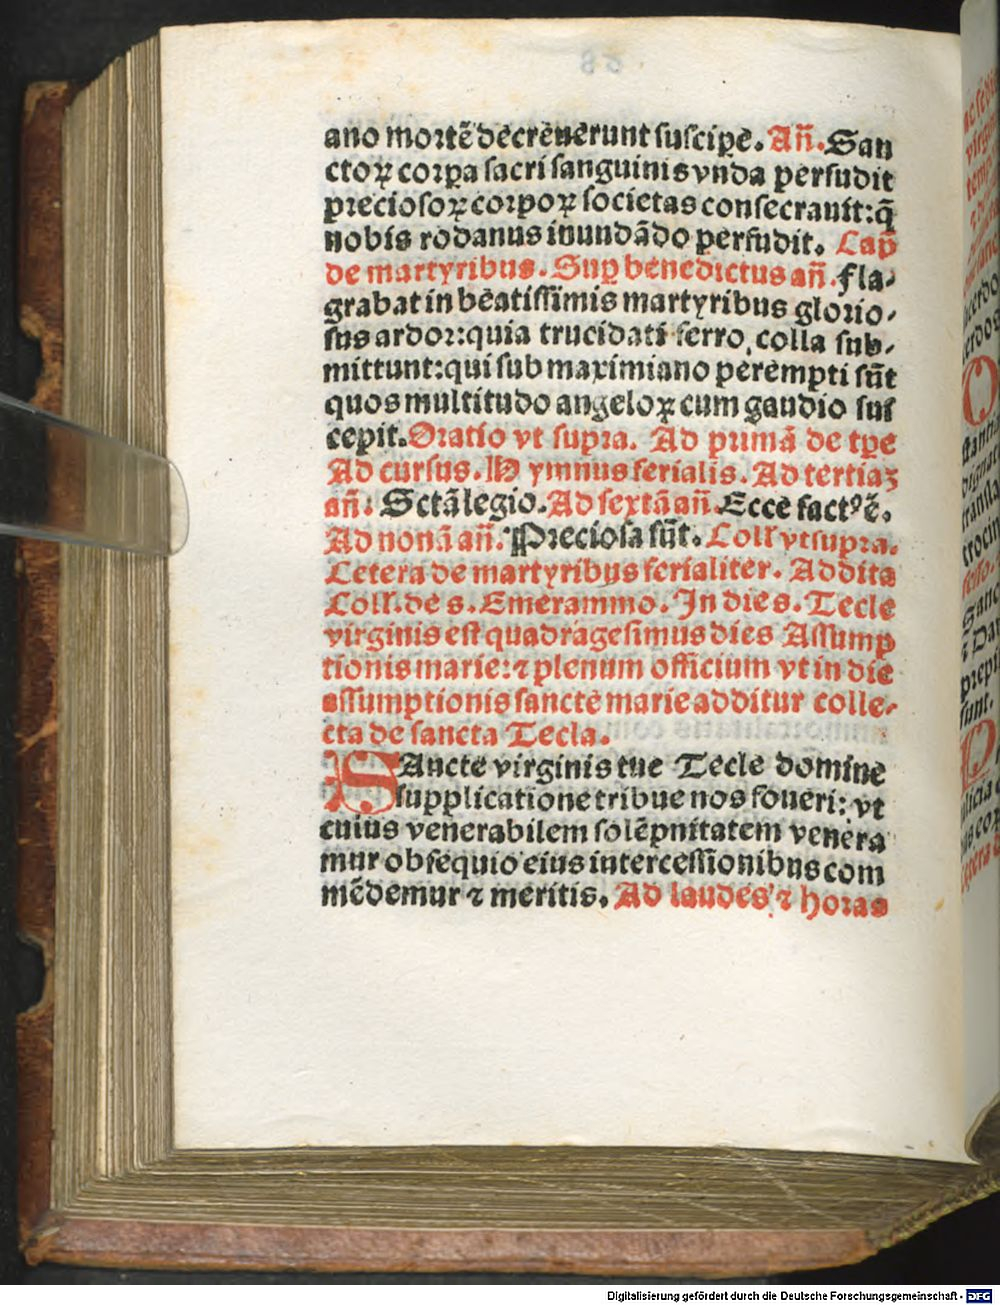 ano mortē decreuerunt suscipe. Añ. San
ctoꝝ corꝑa sacri sanguinis vnda persudit
preciosoꝝ corpoꝝ societas consecrauit: q̄
nobis rodanus inundādo perfudit. Cap̄
de martyribus. Suꝑ benedictus añ. Fla-
grabat in beatissimis martyribus glorio-
sus ardor: quia trucidati ferro, colla sub-
mittunt: qui sub maximiano perempti sūt
quos multitudo angeloꝝ cum gaudio sus
cepit. Oratio vt supra. Ad primā de tꝑe
Ad cursus. Hymnus ferialis. Ad tertiaꝫ
añ. Sctā legio. Ad sextā añ. Ecce factꝰ ē.
Ad nonā añ. Preciosa sūt. Coll' vt supra.
Cetera de martyribus ferialiter. Addita
Coll. de s. Emerammo. In die s. Tecle
virginis est quadragesimus dies Assump
tionis marie: ⁊ plenum officium vt in die
assumptionis sancte marie additur colle-
cta de sancta Tecla.
SAncte virginis tue Tecle domine
supplicatione tribue nos foueri: vt
cuius venerabilem solēpnitatem venera
mur obsequio eius intercessionibus com
mēdemur ⁊ meritis. Ad laudes ⁊ horas
Digitalisierung gefördert durch die Deutsche Forschungsgemeinschaft - DFG